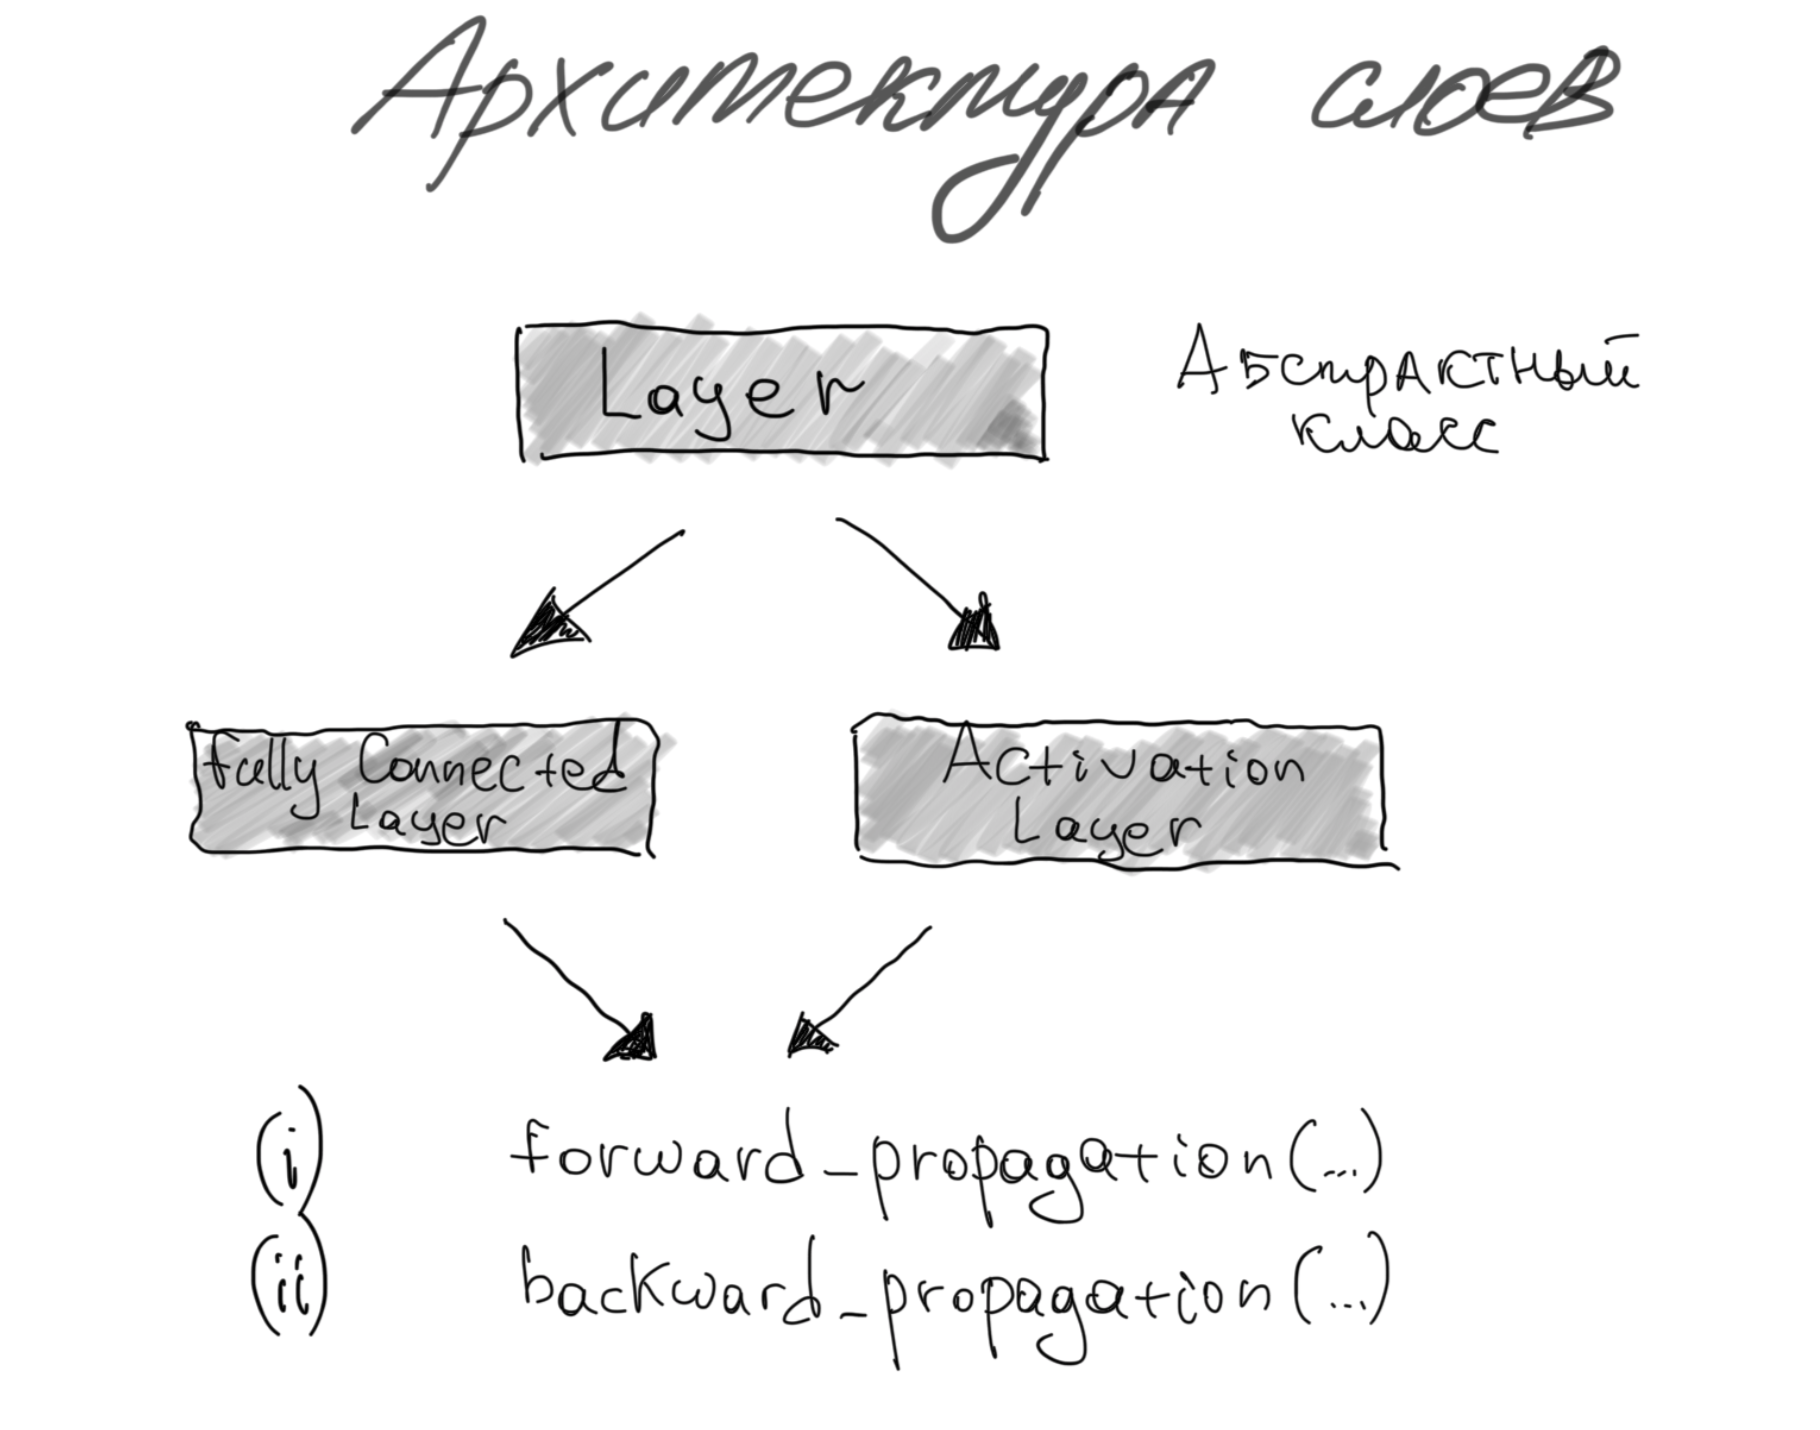 Архитектура слоев
Layer
Абстрактный
класс
Fully Connected
Layer
Activation
Layer
(i) forward_propagation(...)
(ii) backward_propagation(...)